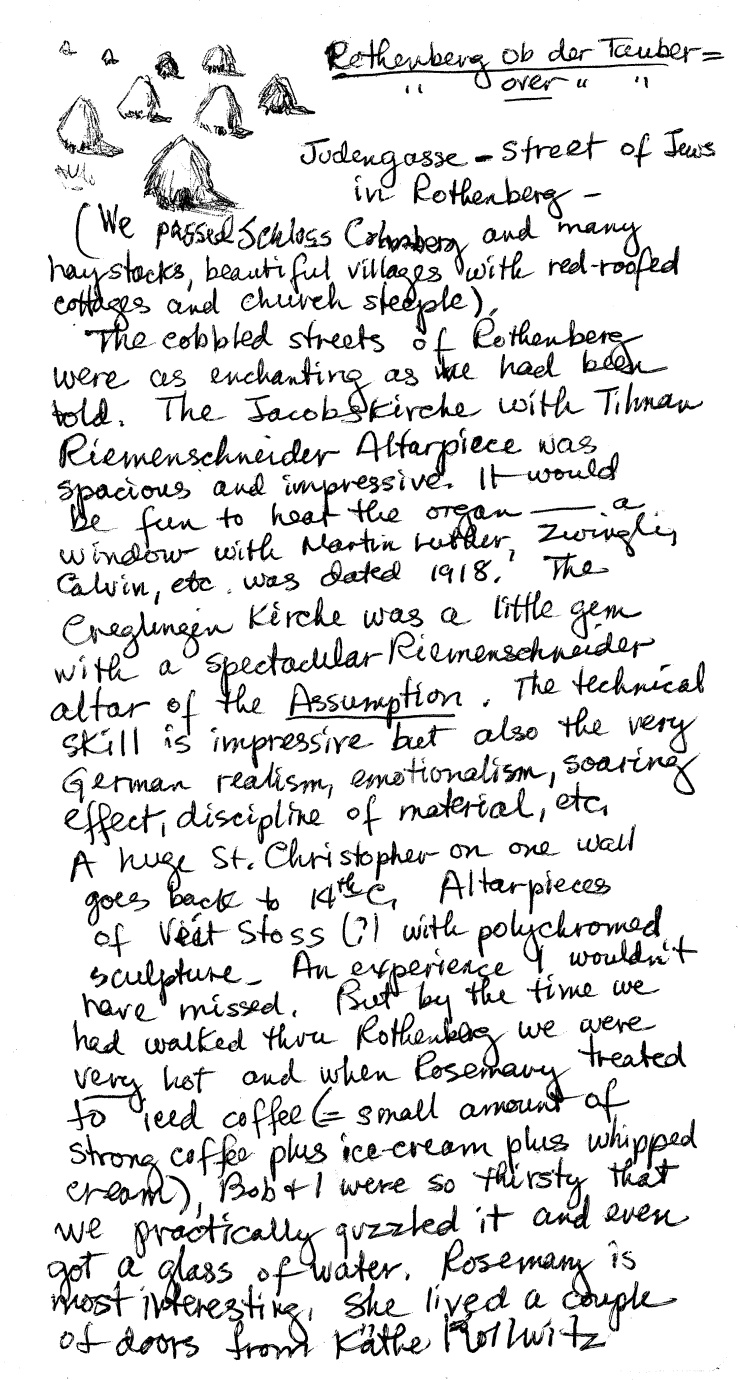 Rothenberg ob der Tauber =
" over " "
Judengasse - Street of Jews
in Rothenberg -
(We passed Schloss Colmberg and many
haystacks, beautiful villages with red-roofed
cottages and church steeple).
The cobbled streets of Rothenberg
were as enchanting as we had been
told. The Jacobskirche with Tilman
Riemenschneider Altarpiece was
spacious and impressive. It would
be fun to hear the organ — a
window with Martin Luther, Zwingli,
Calvin, etc. was dated 1918. The
Creglingen Kirche was a little gem
with a spectacular Riemenschneider
altar of the Assumption. The technical
skill is impressive but also the very
German realism, emotionalism, soaring
effect, discipline of material, etc.
A huge St. Christopher on one wall
goes back to 14th C. Altarpieces
of Veit Stoss (?) with polychromed
sculpture - An experience I wouldn't
have missed. But by the time we
had walked thru Rothenberg we were
very hot and when Rosemary treated
to iced coffee (= small amount of
strong coffee plus ice-cream plus whipped
cream), Bob & I were so thirsty that
we practically guzzled it and even
got a glass of water. Rosemary is
most interesting. She lived a couple
of doors from Käthe Kollwitz